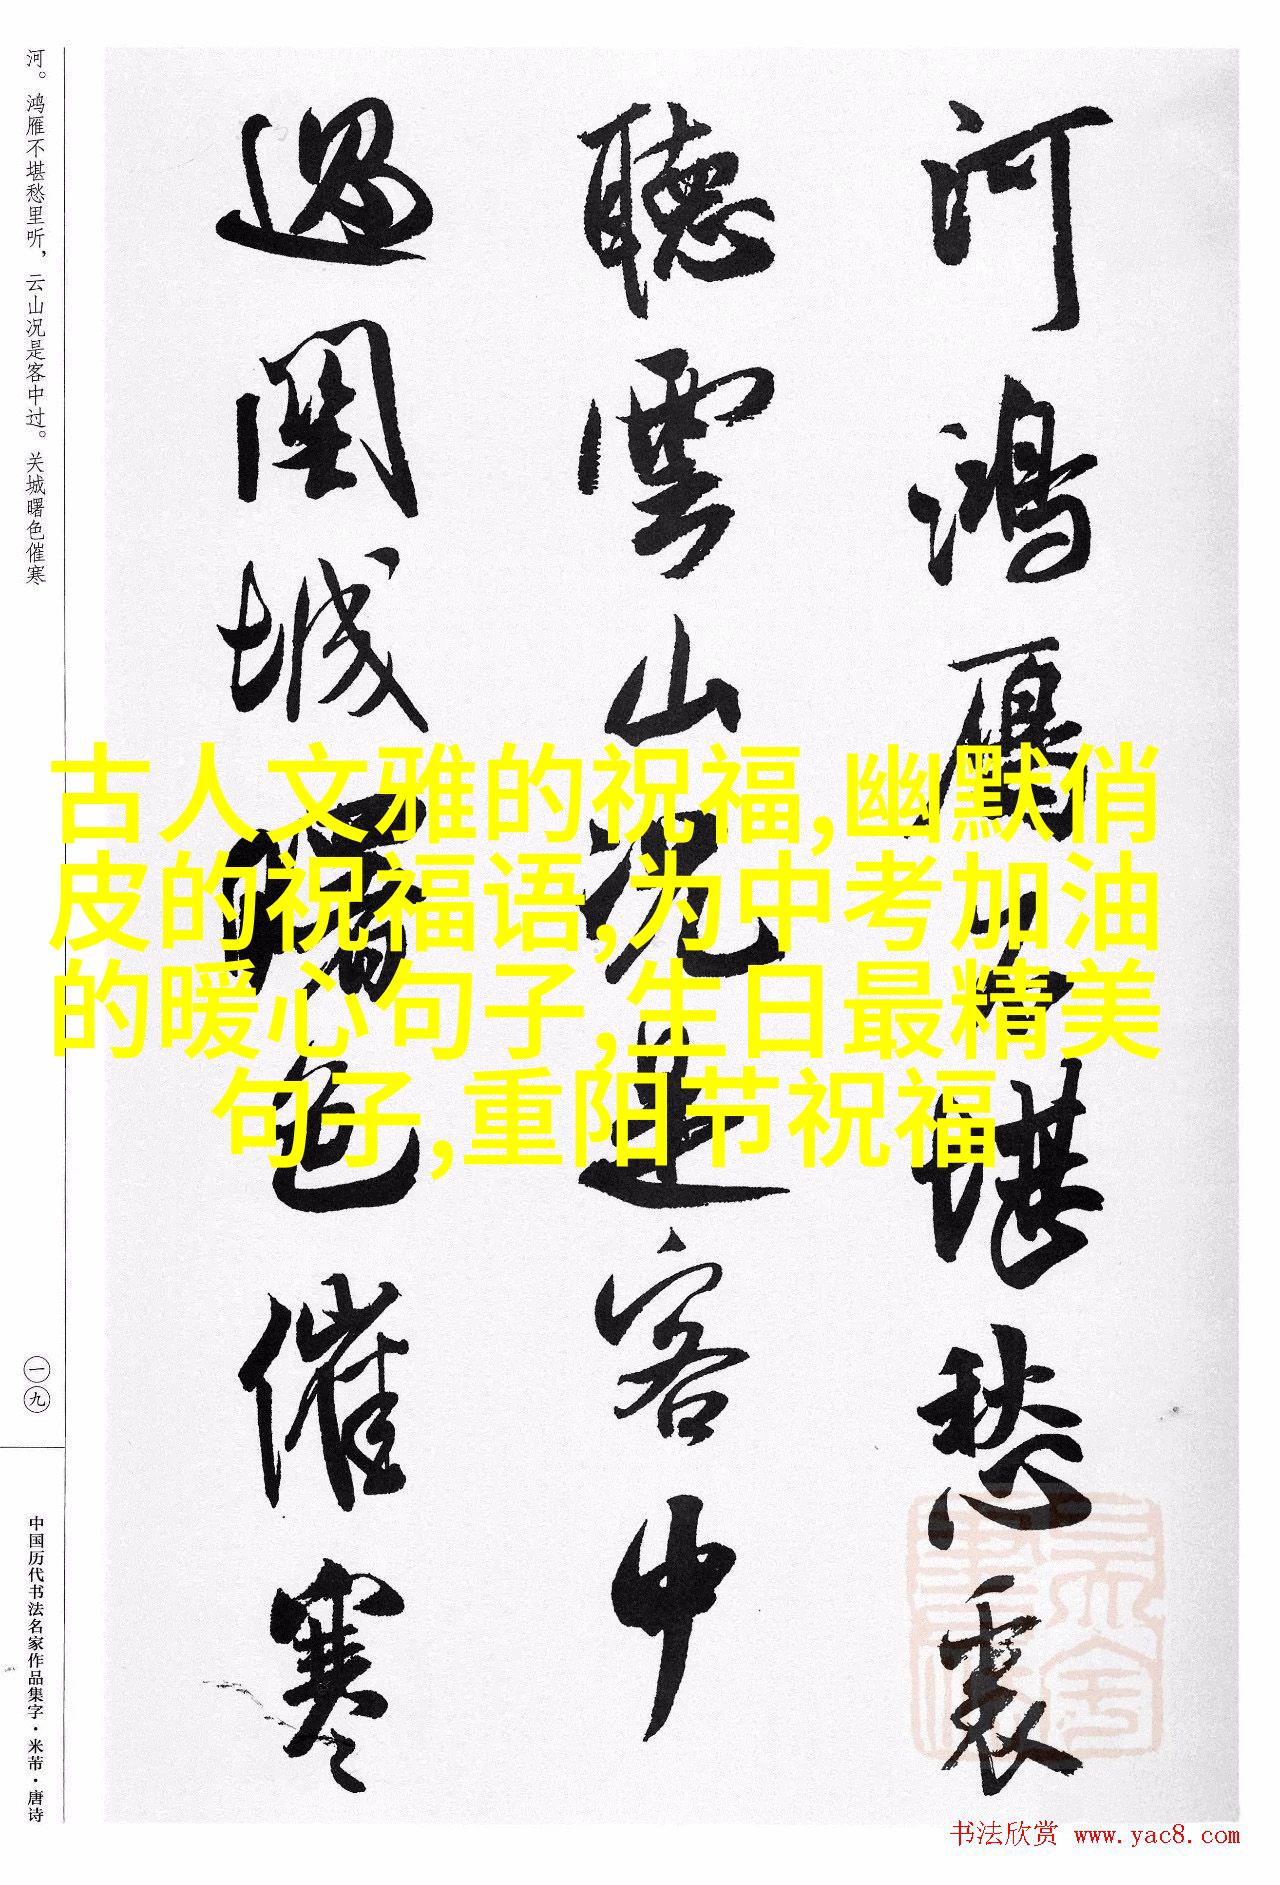 河鸿雁不堪愁裏
聽雲山况是客中
過関城曙色催寒
河。鸿雁不堪愁里听，云山况是客中过。关城曙色催寒
一九
中国历代书法名家作品集字·米芾·唐诗
古人文雅的祝福,幽默俏
皮的祝福语,为中考加油
的暖心句子,生日最精美
句子,重阳节祝福
书法欣赏 www.yac8.com